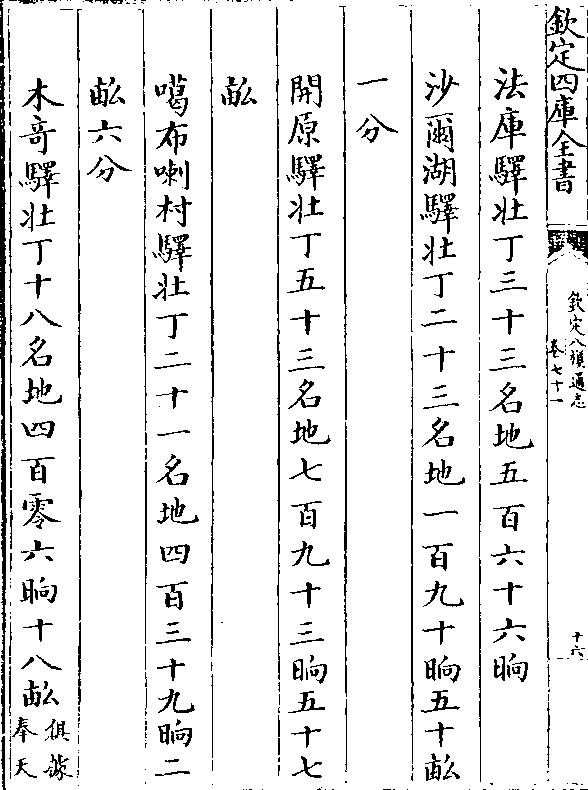 欽定四庫全書
欽定八旗通志
卷七十一
十六
法庫驛壯丁三十三名地五百六十六晌
沙爾湖驛壯丁二十三名地一百九十晌五十畝
一分
開原驛壯丁五十三名地七百九十三晌五十七
畝
噶布喇村驛壯丁二十一名地四百三十九晌二
畝六分
木竒驛壯丁十八名地四百零六晌十八畝俱據
奉天